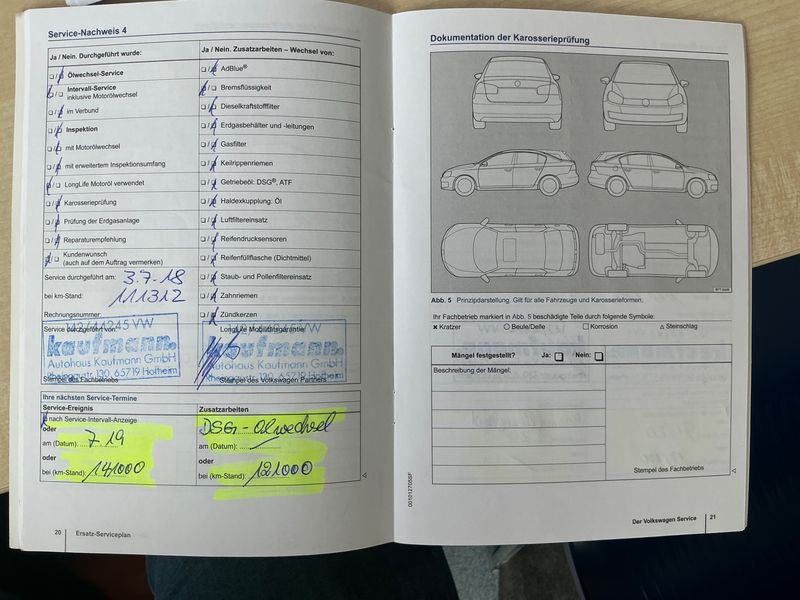 Service-Nachweis 4
Ja / Nein. Durchgeführt wurde:
Ölwechsel-Service
Intervall-Service
inklusive Motorölwechsel
im Verbund
Inspektion
mit Motorölwechsel
mit erweitertem Inspektionsumfang
LongLife Motoröl verwendet
Karosserieprüfung
Prüfung der Erdgasanlage
Reparaturempfehlung
Kundenwunsch
(auch auf dem Auftrag vermerken)
Service durchgeführt am: 3.7.18
bei km-Stand: 111312
Rechnungsnummer:
Service durchgeführt von:
kaufmann.
Autohaus Kaufmann GmbH
130, 65719 Hofheim
Stempel des Fachbetriebs
Ja / Nein. Zusatzarbeiten – Wechsel von:
AdBlue®
Bremsflüssigkeit
Dieselkraftstofffilter
Erdgasbehälter und -leitungen
Gasfilter
Keilrippenriemen
Getriebeöl: DSG®, ATF
Haldexkupplung: Öl
Luftfiltereinsatz
Reifendrucksensoren
Reifenfüllflasche (Dichtmittel)
Staub- und Pollenfiltereinsatz
Zahnriemen
Zündkerzen
LongLife Mobilitätsgarantie
kaufmann.
Autohaus Kaufmann GmbH
130, 65719 Hofheim
Stempel des Volkswagen Partners
Ihre nächsten Service-Termine
Service-Ereignis
nach Service-Intervall-Anzeige
oder
am (Datum): 7.19
oder
bei (km-Stand): 141000
Zusatzarbeiten
DSG-Ölwechsel
am (Datum):
oder
bei (km-Stand): 121000
20 Ersatz-Serviceplan
Dokumentation der Karosserieprüfung
Abb. 5 Prinzipdarstellung. Gilt für alle Fahrzeuge und Karosserieformen.
Ihr Fachbetrieb markiert in Abb. 5 beschädigte Teile durch folgende Symbole:
× Kratzer ○ Beule/Delle □ Korrosion △ Steinschlag
Mängel festgestellt? Ja: □ / Nein: □
Beschreibung der Mängel:
Stempel des Fachbetriebs
001012705SF
Der Volkswagen Service 21